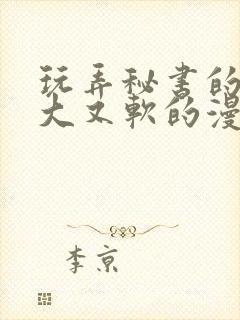 玩弄秘书的
大又软的漫
李京